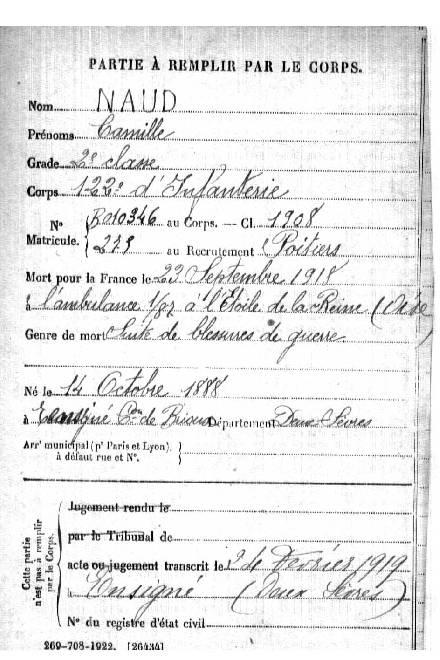 PARTIE À REMPLIR PAR LE CORPS.
Nom NAUD
Prénoms Camille
Grade 2e classe
Corps 122e d'Infanterie
N° Matricule. { 8010346 au Corps. — Cl. 1908
223 au Recrutement Poitiers
Mort pour la France le 23 Septembre 1918
à l'ambulance 1/87 à l'Étoile de la Reine (
Genre de mort Suite de blessures de guerre
Né le 14 Octobre 1888
à Ensigné Con de Brioux Département Deux-Sèvres
Arrt municipal (pr Paris et Lyon), }
à défaut rue et N°.
Cette partie n'est pas à remplir par le Corps.
Jugement rendu le
par le Tribunal de
acte ou jugement transcrit le 24 Février 1919
à Ensigné (Deux Sèvres)
N° du registre d'état civil
269-708-1922. [26434]